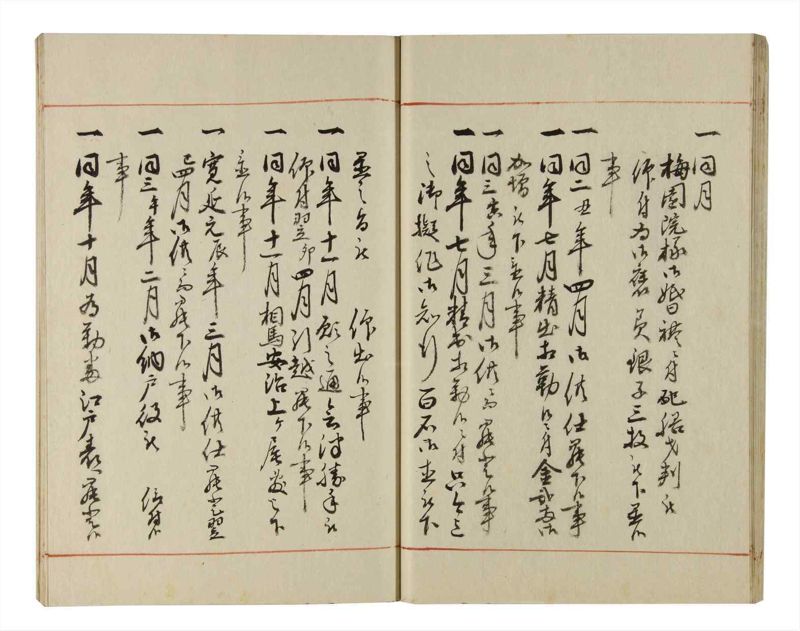 一同月
梅園院様御婚禮ニ付
為御褒美銀子三枚被下置候
事
一同二丑年四月御供仕罷下候事
一同年七月精出相勤候ニ付金
加増被下置候事
一同三寅年三月御供ニ而罷登候事
一同年七月精出相勤候ニ付只今迄
之御擬作御知行百石御直被下
置之旨被 仰出候事
一同年十一月願之通会津勝手被
仰付翌卯四月引越罷下候事
一同年十一月相馬安治上ヶ屋敷被下
置候事
一寛延元辰年三月御供仕罷登翌
巳四月御供ニ而罷下候事
一同三午年二月御納戸役被 仰付候
事
一同年十月為勤番江戸表罷登候